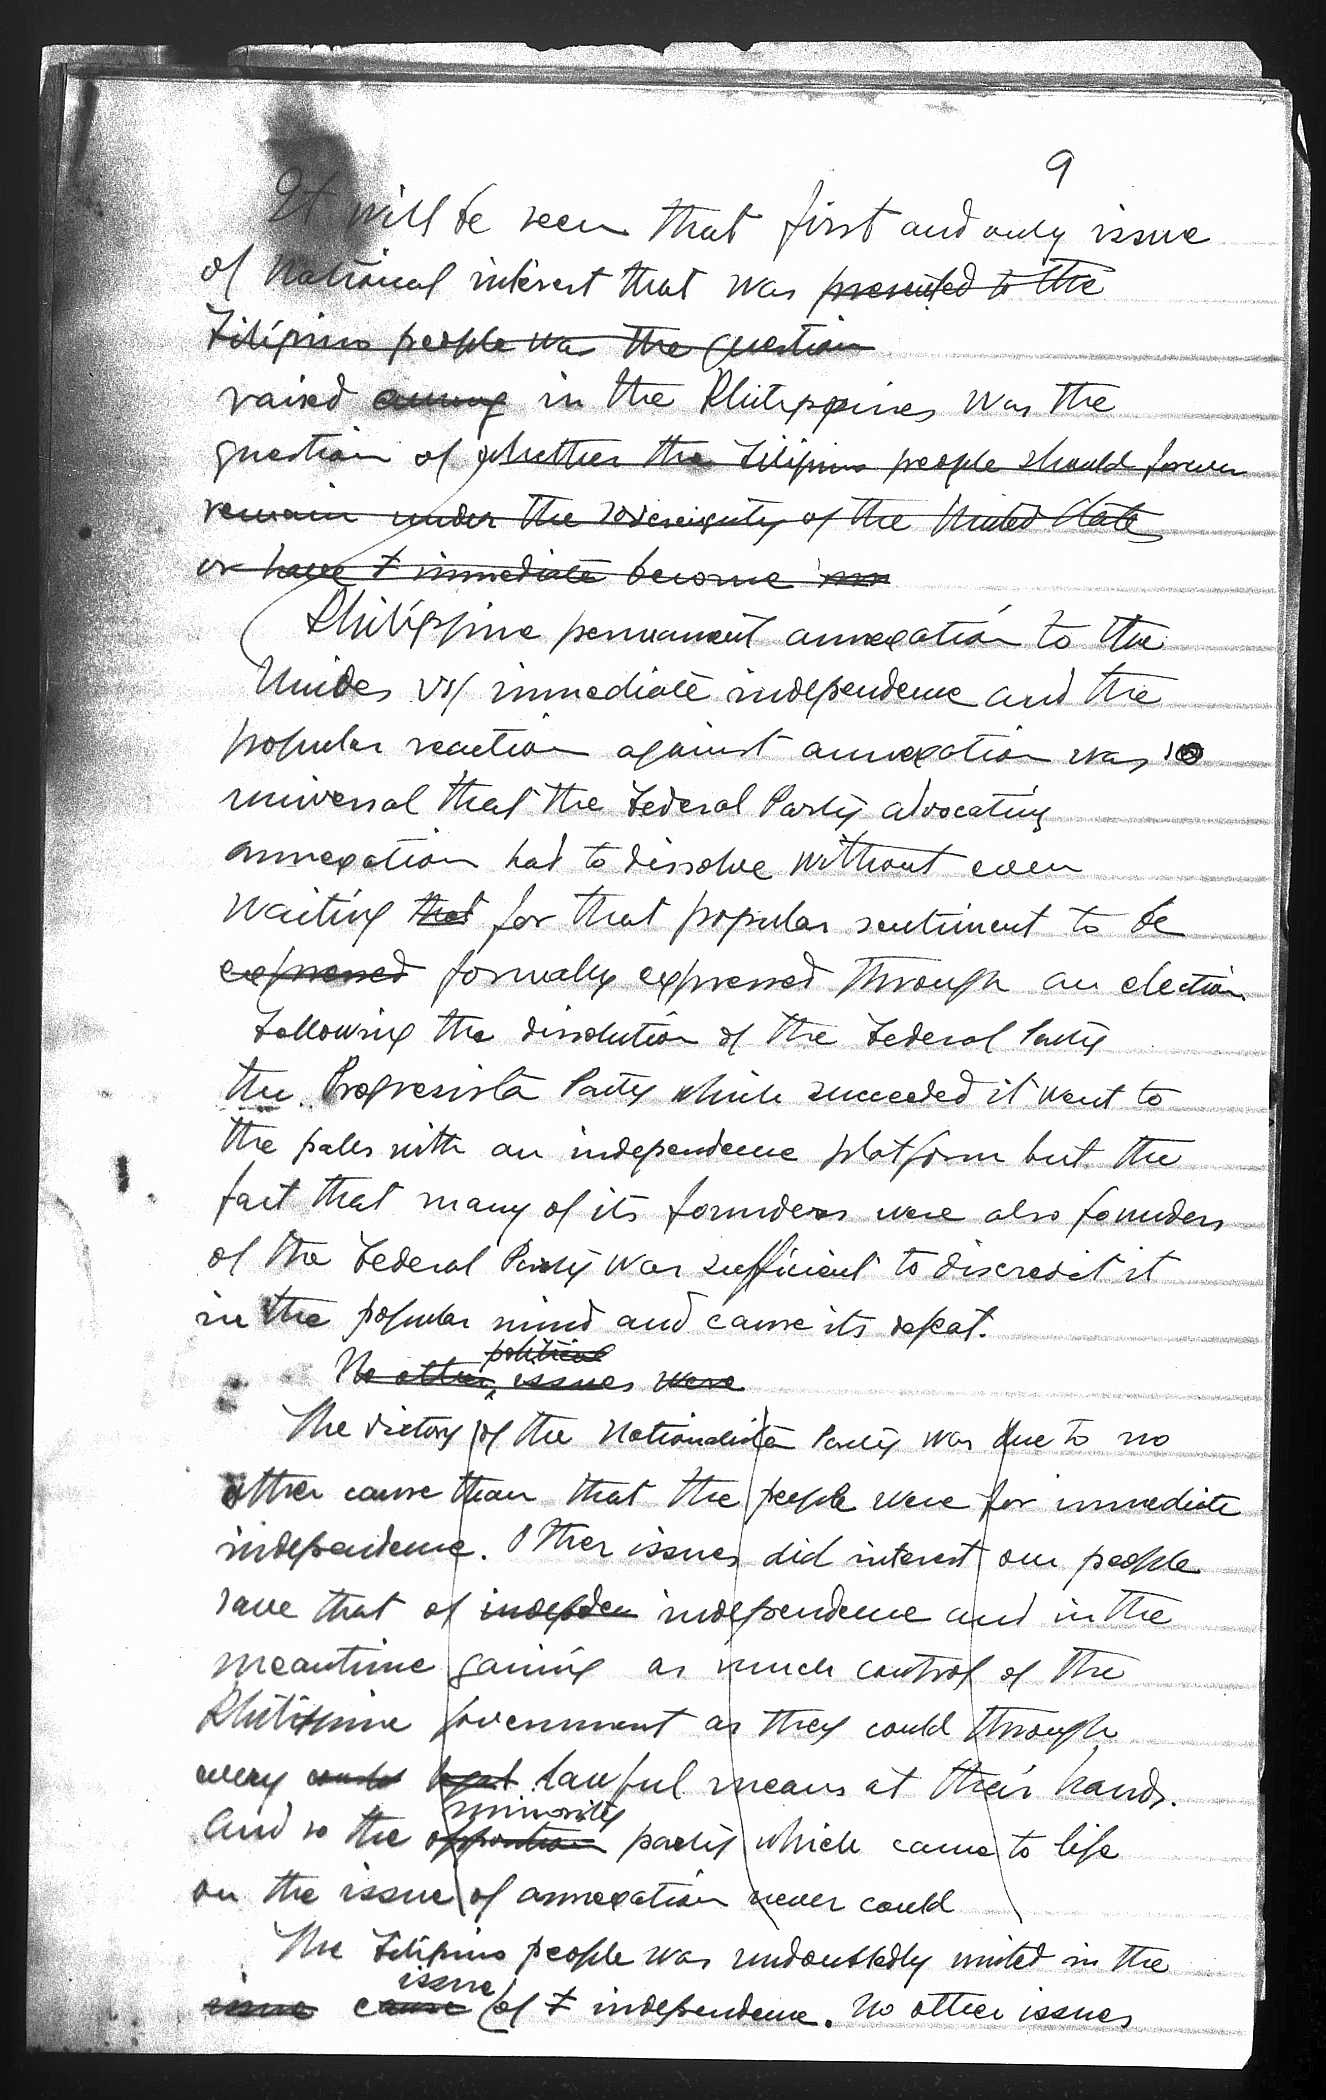 9
It will be seen that first and only issue
of National interest that was presented to the
Filipino people was the question
raised among in the Philippines was the
question of whether the Filipino people should forever
remain under the sovereignty of the United States
or have + immediate become
Philippine permanent annexation to the
Unides vs/ immediate independence and the
popular reaction against annexation was so
universal that the Federal Party advocating
annexation had to dissolve without even
waiting that for that popular sentiment to be
expressed formally expressed through an election.
Following the dissolution of the Federal Party
the Progresista Party which succeeded it went to
the polls with an independence platform but the
fact that many of its founders were also founders
of the Federal Party was sufficient to discredit it
in the popular mind and cause its defeat.
political
No other issues were
The victory of the Nationalista Party was due to no
other cause than that the people were for immediate
independence. Other issues did interest our people
save that of indepden independence and in the
meantime gaining as much control of the
Philippine government as they could through
every could legal lawful means at their hands.
minority
And so the opposition party which came to life
on the issue of annexation never could
The Filipino people was undoubtedly united in the
issue
issue cause of + independence. No other issues